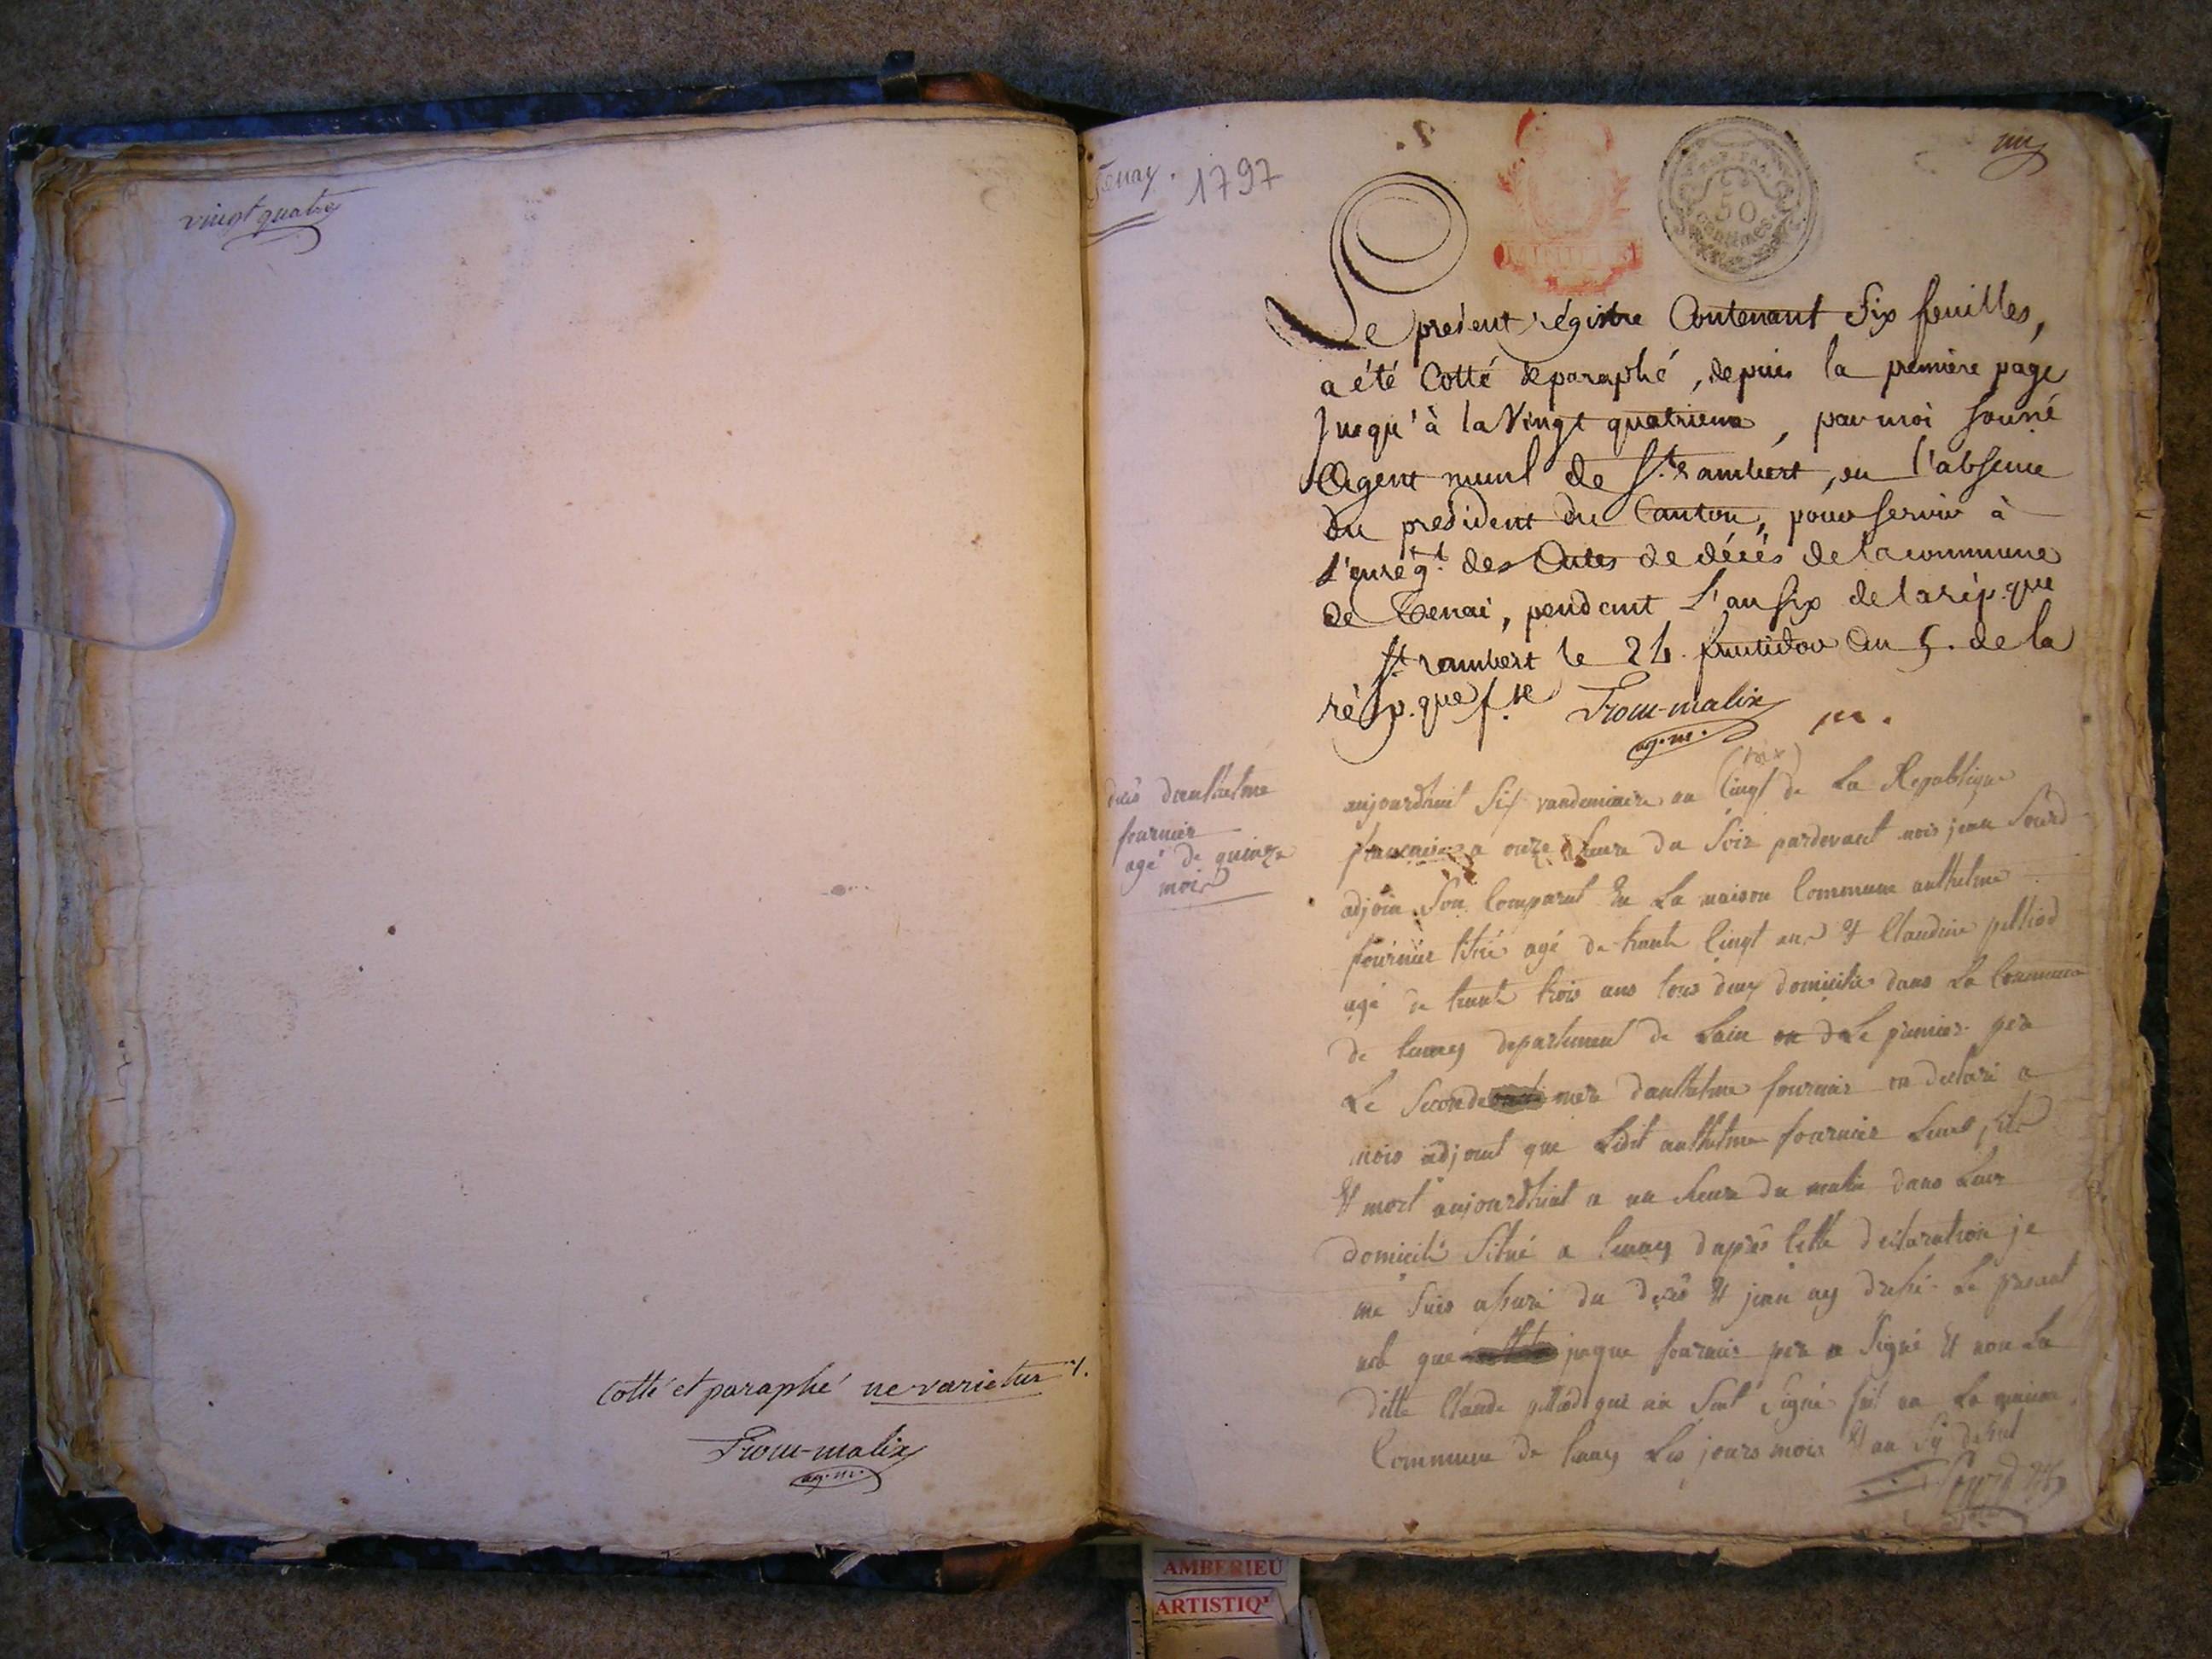 vingt quatre
Cotté et paraphé ne varietur
ag. m.
Tenay. 1797
2.
50
centimes
un
Le présent régistre Contenant Six feuilles,
a été Cotté & paraphé, depuis la première page
Jusqu'à la Vingt quatrieme, par moi sousné
Agent munl de St. rambert, en l'absence
du président du Canton, pour servir à
l'enrégt. des Actes de décés de la commune
de Tenai, pendant L'an six de la rép.que
St. rambert le 24. fructidor an 5. de la
rép.que f.se
ag. m.
decès danthelme
fournier
agé de quinze
mois
aujourdhuit six vandemiaire an Cingt de La Republique
francaise a onze heure du soir pardevant nois jean Sourd
adjoin Son Comparut En La maison Commune anthelme
fournier agé de trante Cingt ans & Claudine pelliod
agé de trante trois ans tous deux domicilie dans La Commune
de tenay departement de Lain Le premier pere
Le seconde mere danthelme fournier on declaré a
nois adjoint que Ledit anthelme fournier Leur fils
Et mort aujourdhuit a un heure du matin dans Leur
domicile Situé a tenay dapres Cette declaration je
me suis assuré du decès & jean ay dressé Le present
que jaque fournier pere a Signé Et non La
ditte Claude pelliod qui Signé fait en La maison
Commune de tenay Les jours mois & an
Sourd
AMBERIEU
ARTISTIQ